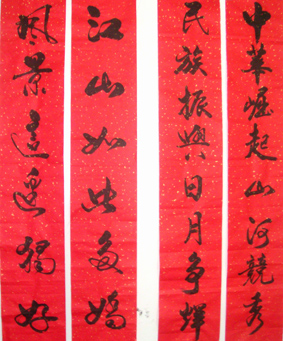 中華崛起山河競秀
民族振興日月争輝
江山如此多嬌
風景這邊獨好